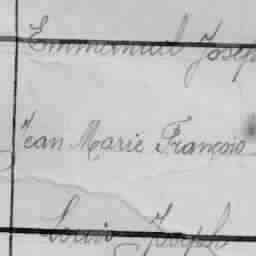 Emmanuel Josep
Jean Marie François
Louis Joseph